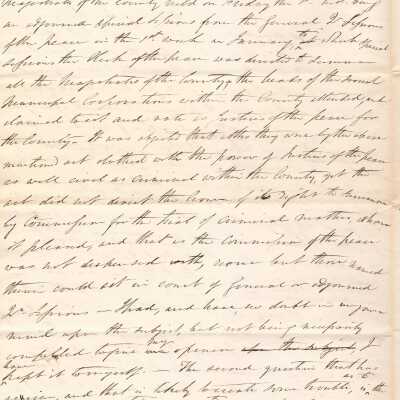 Magistrates of the County held on Friday the 1st
an adjourned special Sessions from the General Qr Sessions
of the peace in the 1st week in January to which special
Sessions the Clerk of the peace was directed to summon
all the Magistrates of the County, the heads of the several
Municipal Corporations within the County attended, and
claimed to act and vote as Justices of the peace for
the County. It was objected that altho they were by the above
mentioned act clothed with the power of Justices of the peace
as well civil as criminal within the County, yet the
act did not divest the Crown of its right to summon
by Commission for the trial of criminal matters, whom
it pleased, and that as the Commission of the peace
was not dispensed with, none but those named
therein could act in court of General or adjourned
Qr Sessions — I had, and have, no doubt in my own
mind upon the subject, but not being necessarily
compelled to give my opinion upon the subject, I
kept it to myself. — The second question that has
arisen, and that is likely to create some trouble, is as to the